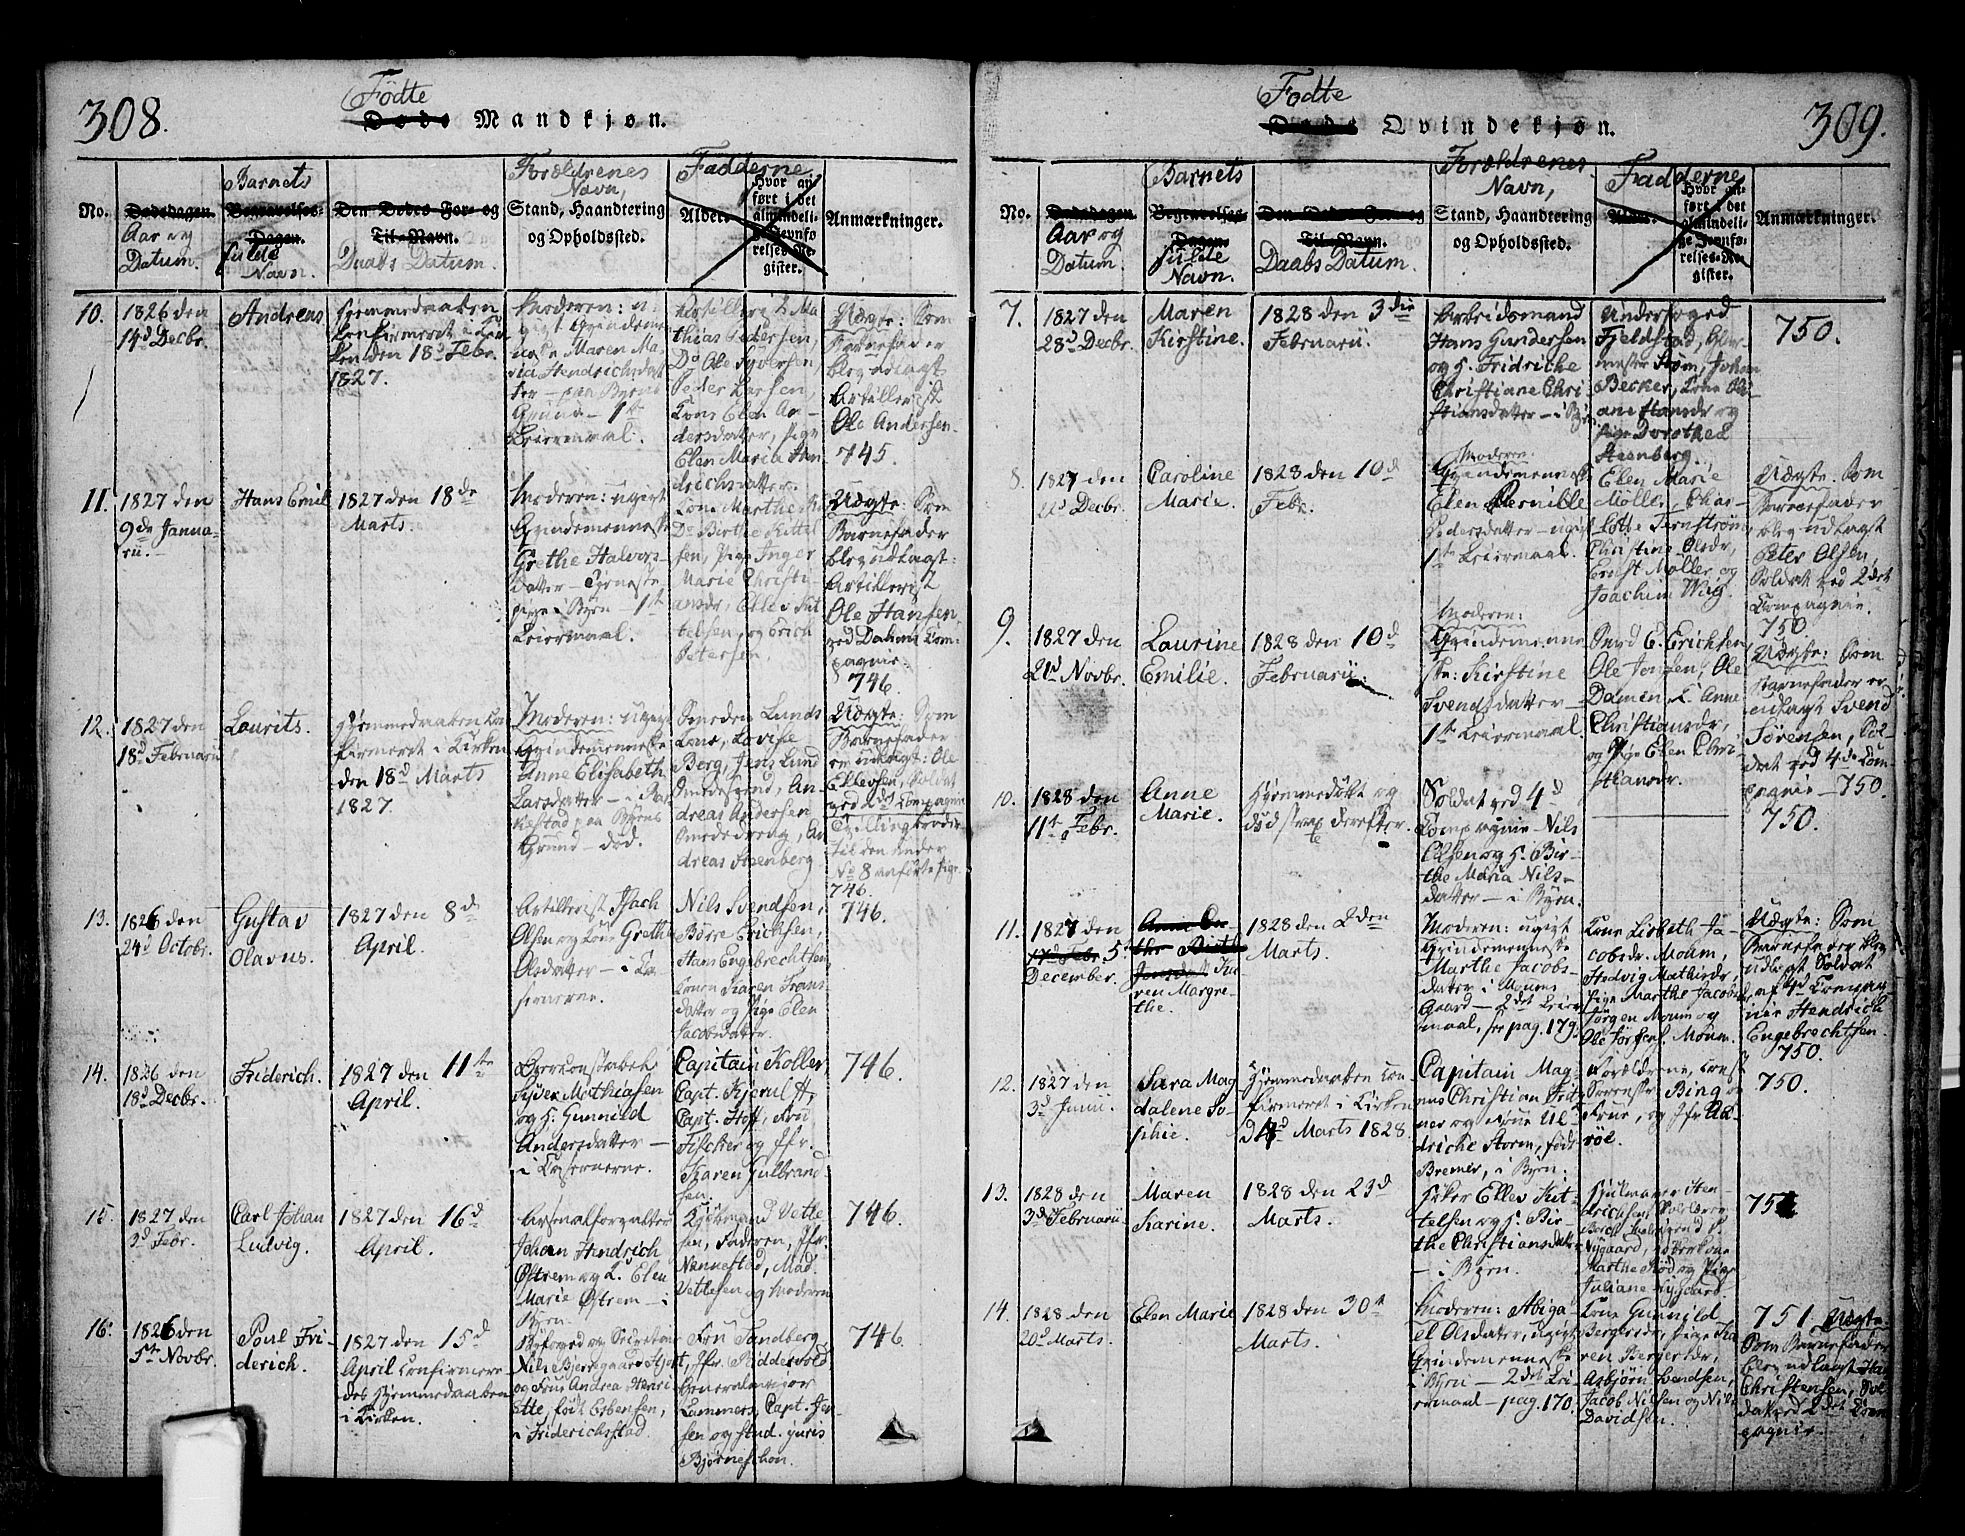 308.
Födte
Døde Mandkjøn.
No.
Dødsdagen.
Aar og
Datum.
Barnets
Begravelses-
Dagen.
fulde
Navn.
Den Dødes For- og
Til-Navn.
Daabs Datum.
Forældrenes
Navn,
Stand, Haandtering
og Opholdssted.
Fadderne
Alder.
Hvor an-
ført i det
almindeli-
ge Jevnfø-
relses-Re-
gister.
Anmærkninger.
10.
1826 den
14d Decbr.
Andreas
Hjemmedøbt
Confirmeret i Kir-
ken den 18d Febr.
1827.
Moderen: u-
gigt Qvindeme-
neske Maren Ma-
ria Hendrichsdat-
ter – paa Byens
Grund – 1ste
Leiermaal.
Artillerist Ma-
thias Pedersen,
Do Ole Syversen,
Peder Larsen,
Kone Elen An-
dersdatter, Pige
Elen Maria Hen-
drichsdatter.
Uægte: Som
Barnefader
blev udlagt
Artillerist
Ole Andersen.
745.
11.
1827 den
9de Janua-
rii.
Hans Emil
1827 den 18de
Marts.
Moderen: ugigt
Qvindemenneske
Grethe Halvors-
datter – Tjeneste-
pige i Byen – 1st
Leiermaal.
Kone Marthe
Do Birthe Kittel-
sen, Pige Inger
Marie Christi-
ansdr, Elle Kit-
telsen, og Erich
Petersen.
Uægte: Som
Barnefader
blev udlagt:
Artillerist
Ole Hansen
ved Dahms Com-
pagnie.
746.
12.
1827 den
18d Februarii
Laurits.
Hjemmedaaben Con-
firmeret i Kirken
den 18d Marts
1827.
Moderen: ugigt
Qvindemenneske
Anne Elisabeth
Larsdatter – i
paa Byens
Grund – død.
Smeden Lunds
Kone, Lovise
Berg, Jens Lund
Smedesvend, An-
dreas Andersen
Smededreng, An-
dreas Steenberg
Uægte: Som
Barnefader
er udlagt: Ole
Ellevsen, Soldat
ved 2det Compagnie
Tvillingbroder
til den under
No 8 anførte Pige
746.
13.
1826 den
24d Octobr.
Gustav
Olavus.
1827 den 8d
April.
Artillerist Isach
Olsen og Kone Grethe
Olsdatter – i Ca-
sernerne.
Nils Svendsen,
Børre Erichsen,
Hans Engebrechtsen,
Konen Karen Frans-
datter og Pige Elen
Jacobsdatter.
746.
14.
1826 den
18d Decbr.
Friderich.
1827 den 11te
April.
Overconstabel
Syver Mathiasen
og H. Gunnild
Andersdatter –
i Casernerne.
Capitain Koller,
Capt. Kjerulf,
Capt. Hoff, Frue
Fischer og Jfr.
Karen Gulbrand-
sen.
746.
15.
1827 den
3d Febr.
Carl Johan
Ludvig.
1827 den 16d
April.
Arsenalforvalter
Johan Hendrich
Østrem og K. Elen
Marie Østrem – i
Byen.
Kjøbmand Vette-
sen, Faderen, Jfr.
Nannestad, Mad.
Vetlesen og Moderen
746.
16.
1826 den
5te Novbr.
Poul Fri-
derich.
1827 den 15d
April Confirmere-
des Hjemmedaaben
i Kirken.
Byfoged og Secretair
Nils Bjerregaard Hjort,
og Frue Andrea Henri-
ette, født Esbensen,
i Friderichstad.
Fru Tandberg
Jfr. Riddervold
Generalmajor
Lammers, Capt. Han-
sen og stud. juris
Bjørneschou.
746
309.
Födte
Døde Qvindekjøn.
No.
Dødsdagen.
Aar og
Datum.
Barnets
Begravelses-
Dagen.
fulde
Navn.
Den Dødes For- og
Til-Navn.
Daabs Datum.
Forældrenes
Navn,
Stand, Haandtering
og Opholdssted.
Fadderne
Alder.
Hvor an-
ført i det
almindeli-
ge Jevnfø-
relses-Re-
gister.
Anmærkninger.
7.
1827 den
28d Decbr.
Maren
Kirstine.
1828 den 3die
Februarii.
Arbeidsmand
Hans Gundersen
og H. Fridriche
Christiane Chri-
stiansdatter – i Byen
Underfoged
Fjeldstad,
Strøm, Johan
Becker, Kone Oli-
ane Hansdr og
Pige Dorothea
Steenberg.
750.
8.
1827 den
21d Decbr.
Caroline
Marie.
1828 den 10d
Febr.
Moderen:
Qvindemenneske
Elen Pernille
Pedersdatter – ugigt
1ste Leiermaal.
Elen Marie
Møller, Char-
lotte Fernstrøm,
Christine Olsdr,
Ernst Møller og
Joachim Wiig.
Uægte. Som
Barnefader
blev udlagt
Peter Olsen,
Soldat ved 2det
Compagnie.
750
9.
1827 den
21d Novbr.
Laurine
Emilie.
1828 den 10d
Februarii.
Moderen:
Qvindemenne-
ske: Kirstine
Svendsdatter –
1ste Leiermaal
Svend E. Erichsen
Ole Jonsen, Ole
Damen, K. Anne
Christiansdr,
og Pige Elen Chri-
stiansdr.
Uægte: Som
Barnefader er
udlagt Svend
Sørensen, Sol-
dat ved 4de Com-
pagnie – 750.
10.
1828 den
11te Febr.
Anne
Marie.
Hjemmedøbt og
død strax derefter.
Soldat ved 4d
Compagnie – Nils
Olsen og H. Bir-
the Maria Nils-
datter – i Byen.
750.
11.
1827 den
17d Febr. 5te
December.
Karen Margre-
the.
1828 den 2den
Marts.
Moderen: ugigt
Qvindemenneske
Marthe Jacobs-
datter i Moums
Gaard – 2det Leier-
maal, see pag. 179.
Kone Lisbeth Ja-
cobsdr. Moum,
Hedvig Mathisdr,
Pige Marthe Jacobsdr
Jørgen Moum og
Ole Jørgens. Moum.
Uægte: Som
Barnefader blev
udlagt Soldat
af 4d Compag-
nie Hendrich
Engebrechtsen.
750.
12.
1827 den
3d Junii.
Sara Mag-
dalene So-
phie.
Hjemmedaaben Con-
firmeret i Kirken
d 4d Marts 1828.
Capitain Mag-
nus Christian
ner og Frue Ul-
driche Storm, født
Bremer, i Byen.
Forældrene,
Sorenskr. Bing og
Frue, og Jfr
røe.
750.
13.
1828 den
3d Februarii
Maren
Karine.
1828 den 23d
Marts.
Høker Ellev Kit-
telsen og H. Bir-
the Christiansdatter
– i Byen.
Hjulmager Hen-
drichsen,
Nygaard, Høkerkone
Marthe Rød og Pige
Juliane Nygaard
751
14.
1828 den
20d Marts.
Elen Marie
1828 den 30te
Marts.
Moderen: Abiga-
el Olsdatter, ugigt
Qvindemenneske
i Byen – 2det Lei-
ermaal – pag. 170.
Kone Gunnild
Bergersdr, Pige Ka-
ren Bergersdr,
Asbjørn Svendsen,
Jacob Nilsen og Nils
Davidsen.
751 Uægte.
Som Barnefader
blev udlagt
Christensen, Sol-
dat ved 2det Com-
pagnie.